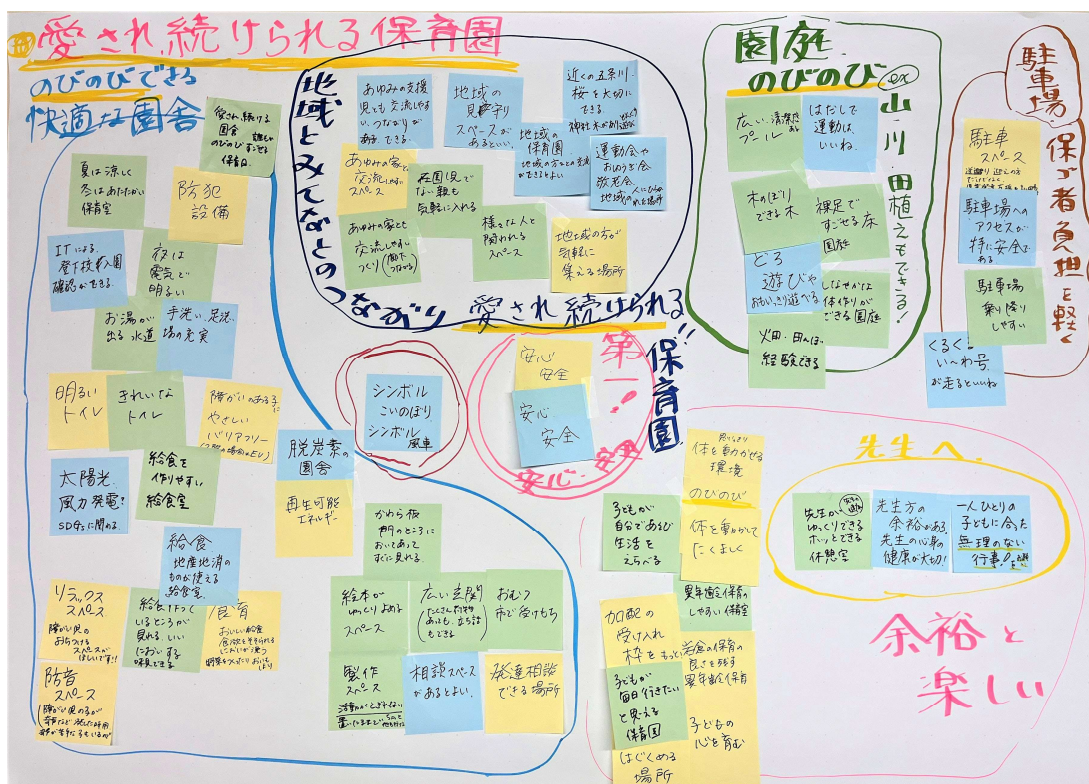 愛され続けられる保育園
のびのびできる
快適な園舎
愛され続ける
園舎
のびのびすごせる
保育园
夏は涼しく
冬はあたたかい
保育室
防犯
設備
ITによる
登下校
確認ができる。
夜は
電気で
明るい
お湯が
出る水道
手洗い、足洗い
場の充実
明るい
トイレ
きれいな
トイレ
障がいのある子に
やさしい
バリアフリー
太陽光
風力発電!
SDGsに関わる。
給食を
作りやすい
給食室
脱炭素の
園舎
再生可能
エネルギー
給食
地産地消の
ものが使える
給食室。
リラックス
スペース
障がい児の
おちつける
スペースが
ほしいです!!
給食作って
いるところが
見れる、いい
においする
食育
おいしい給食
防音
スペース
かわら板
門のところに
おいてあって
すぐに見れる。
絵本が
ゆっくりよめる
スペース
広い玄関
おむつ
市で受けもち
製作
スペース
相談スペース
があるとよい。
発達相談
できる場所
地域とみんなとのつながり
あゆみの支援
児とも交流しやす
い、つながりが
できる。
地域の
見守り
スペースが
あるといい。
近くの五条川
桜を大切に
できる
地域の
保育園
地域の方との交流
ができるとよい
運動会や
おゆうぎ会
敬老会
あゆみの家と
交流しやすい
スペース
在園児で
ない親も
気軽に入れる
あゆみの家と
交流しやすい
つくり
様々な人と
関われる
スペース
地域の方が
気軽に
集える場所
愛され続けられる
保育園!!
シンボル
こいのぼり
シンボル
風車
第一!
安心
安全
安心
安全
安心・安全
園庭
のびのび
ex
山・川・田植えもできる!
広い、清潔な
プール
はだしで
運動は、
いいね。
木のぼり
できる木
裸足で
すごせる床
園庭
どろ
遊びや
おもいっきり遊べる
しなやかな
体作りが
できる園庭
火田・田んぼ
経験できる
駐車場
保ゴ者負担を軽く
駐車
スペース
駐車場への
アクセスが
特に安全で
ある
駐車場
乗り降り
しやすい
くるくる
い〜わ号
が走るといいね
思いっきり
体を動かせる
環境
のびのび
体を動かして
たくましく
子どもが
自分であそび
生活を
えらべる
異年齢保育の
しやすい保育室
加配の
受け入れ
枠をもっと
良さを残す
異年齢保育
子どもが
毎日行きたい
と思える
保育園
子どもの
心を育む
はぐくめる
場所
先生へ
先生が
ゆっくりできる
ホッとできる
休憩室
先生方の
余裕がある
先生の心身の
健康が大切!
一人ひとりの
子どもに合った
無理のない
行事!
余裕と
楽しい